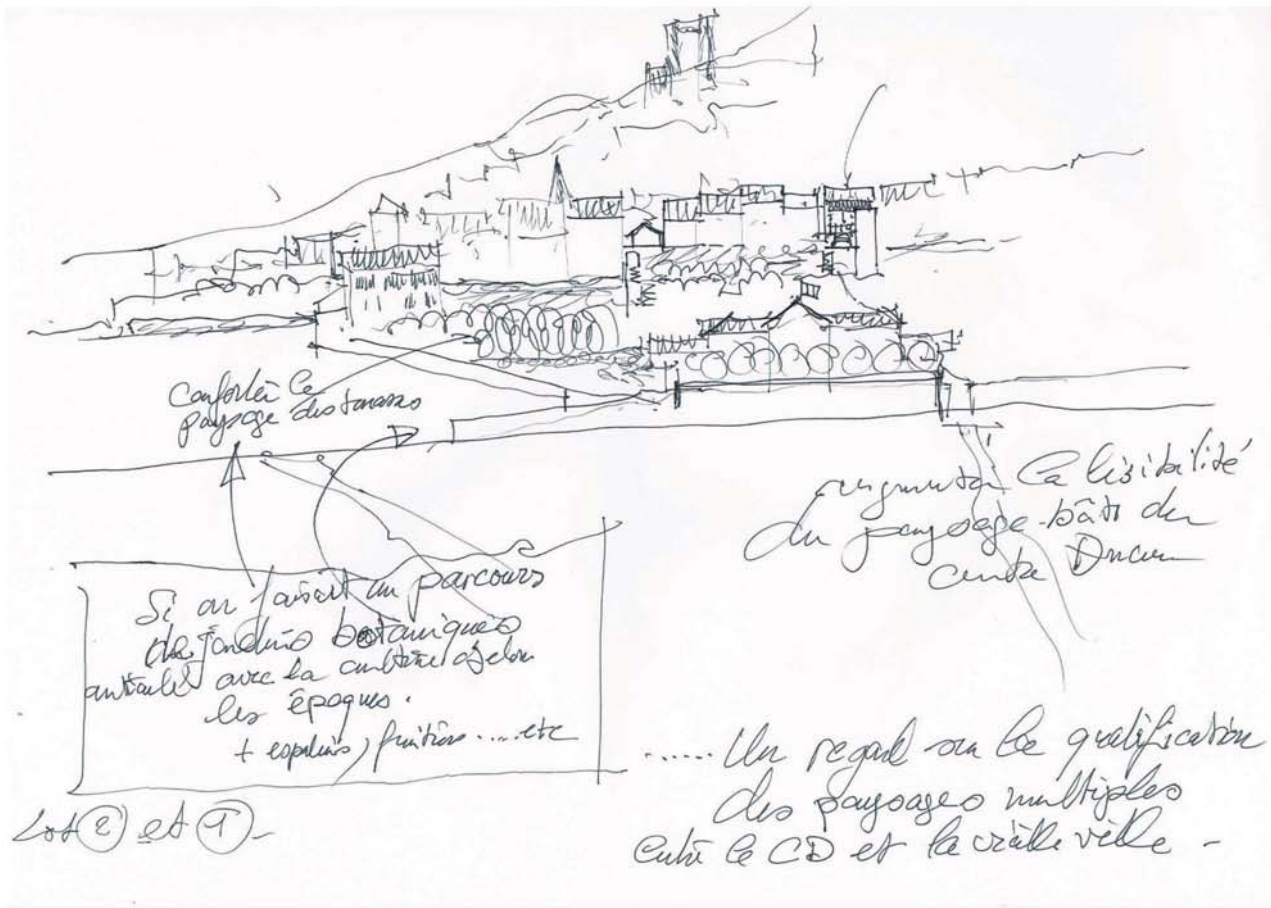 conforter le
paysage des terrasses
augmenter la lisibilité
du paysage-bâti du
centre Ducan
Si on faisait un parcours
de jardins botaniques
avec la culture selon
les époques.
+ espaliers, fruitiers.....etc
Lot ② et ①-
..... Un regard sur la qualification
des paysages multiples
entre le CD et la vieille ville -